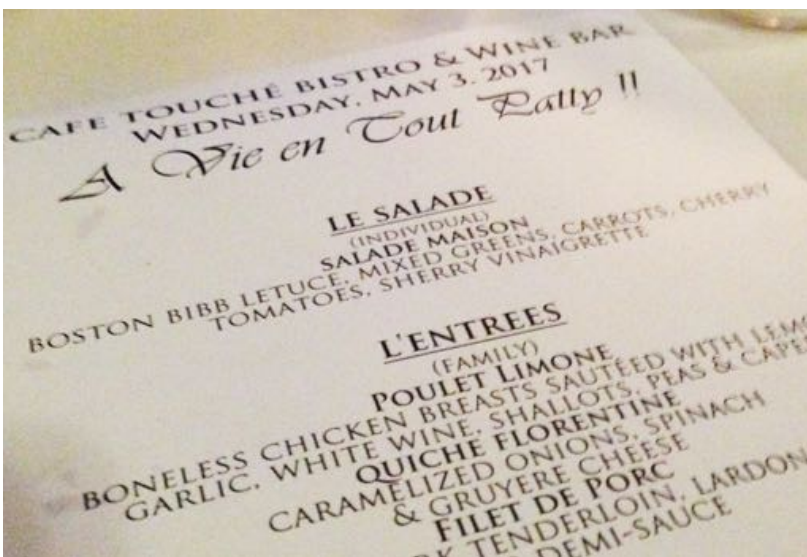 CAFE TOUCHÉ BISTRO & WINE BAR
WEDNESDAY, MAY 3, 2017
A Vie en Tout Patty !!
LE SALADE
(INDIVIDUAL)
SALADE MAISON
BOSTON BIBB LETUCE, MIXED GREENS, CARROTS, CHERRY
TOMATOES, SHERRY VINAIGRETTE
L'ENTREES
(FAMILY)
POULET LIMONE
BONELESS CHICKEN BREASTS SAUTÉED WITH
GARLIC, WHITE WINE, SHALLOTS, PEAS &
QUICHE FLORENTINE
CARAMELIZED ONIONS, SPINACH
& GRUYERE CHEESE
FILET DE PORC
TENDERLOIN, LARDON
DEMI-SAUCE